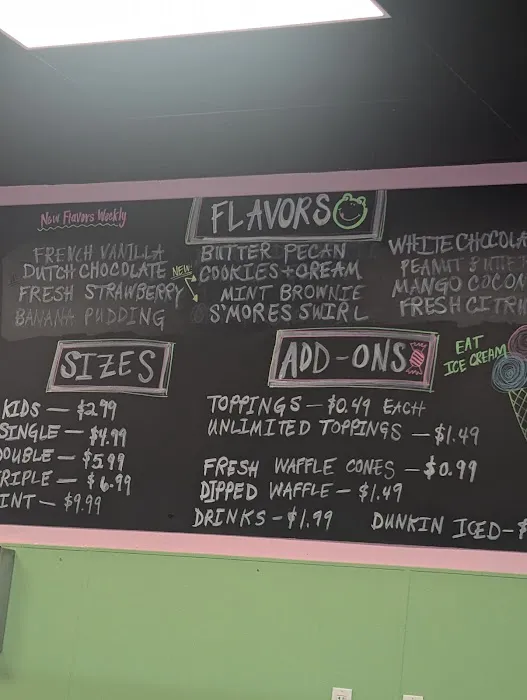 New Flavors Weekly
FLAVORS
FRENCH VANILLA
DUTCH CHOCOLATE
FRESH STRAWBERRY
BANANA PUDDING
NEW
BUTTER PECAN
COOKIES + CREAM
MINT BROWNIE
S'MORES SWIRL
WHITE CHOCOLA
PEANUT BUTTE
MANGO COCON
FRESH CITR
SIZES
KIDS — $2.99
SINGLE — $4.99
OUBLE — $5.99
RIPLE — $6.99
INT — $9.99
ADD-ONS
TOPPINGS — $0.49 EACH
UNLIMITED TOPPINGS — $1.49
FRESH WAFFLE CONES — $0.99
DIPPED WAFFLE — $1.49
DRINKS — $1.99
DUNKIN ICED — $
EAT
ICE CREAM